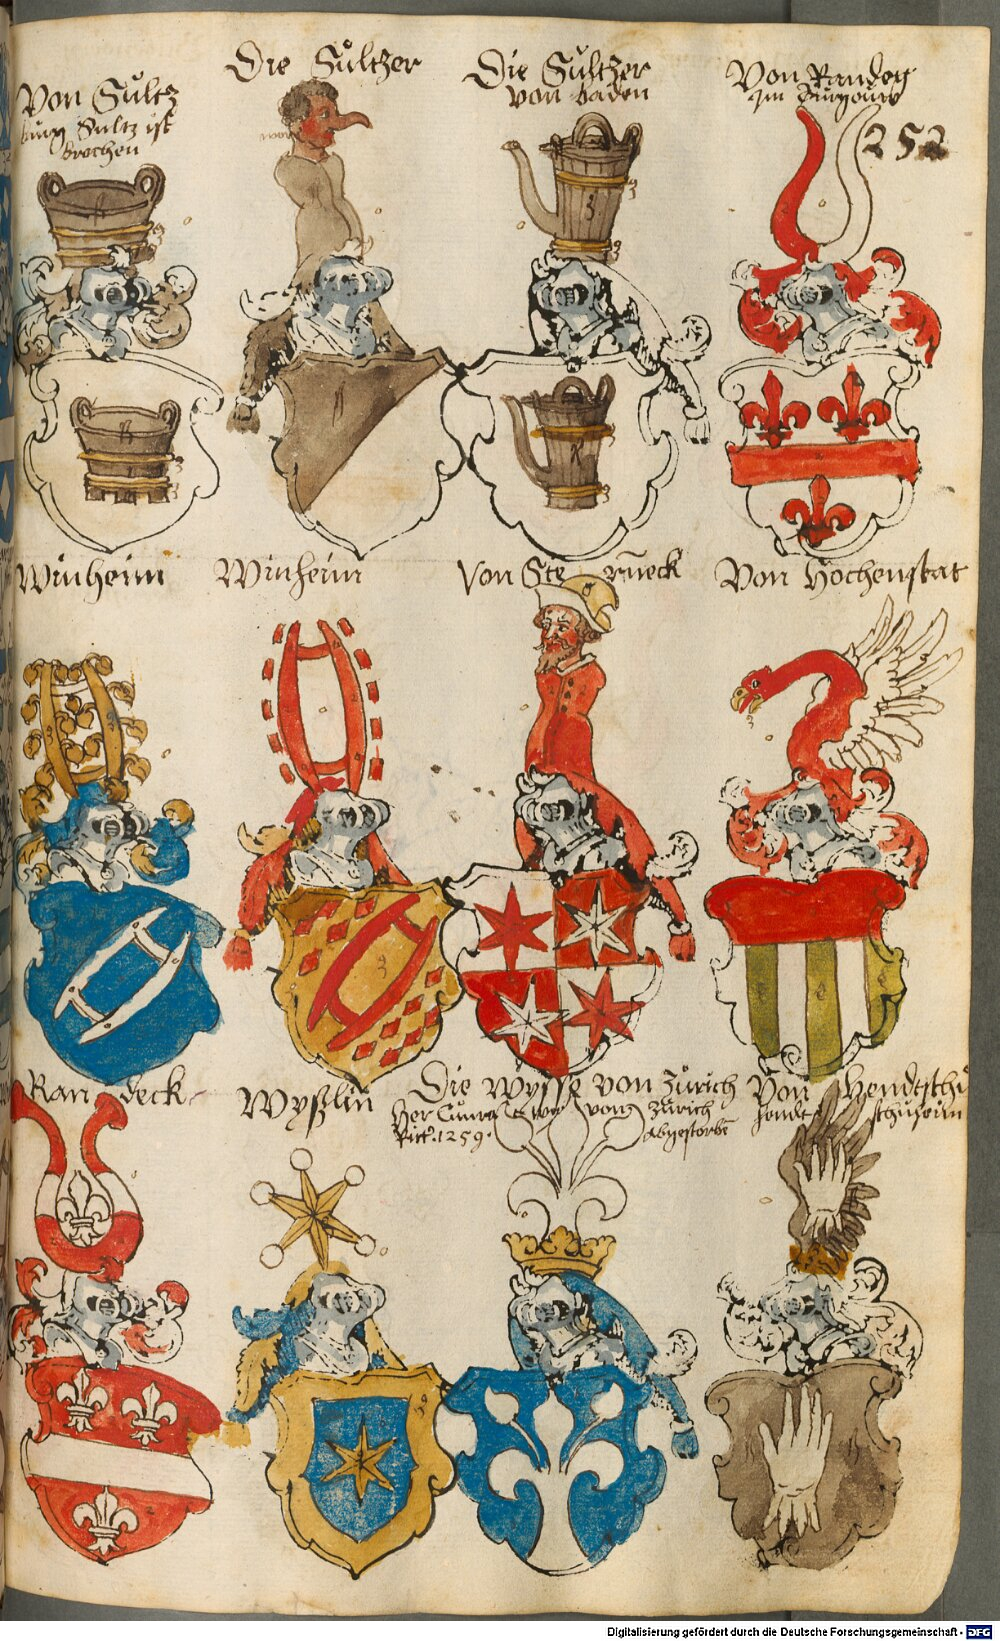 Von Sultz
Sultz ist
brochen
Die Sultzer
Die Sultzer
von baden
Von Randeg
im
252
Winheim
Winheim
Von Ste rneck
Von Hochenstat
Ran deck
Wyßlin
Die Wysse von Zürich
Her
vom Zürich
Rittr. 1259.
abgestorbē
Von Hendtschu
schuheim
Digitalisierung gefördert durch die Deutsche Forschungsgemeinschaft - DFG